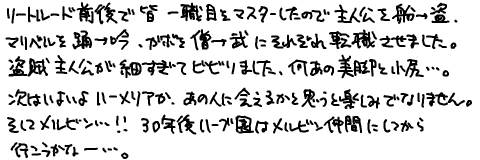 リートルード前後で皆一職目をマスターしたので主人公を船→盗、
マリベルを踊→吟、ガボを僧→武にそれぞれ転職させました。
盗賊主人公が細すぎてビビりました、何あの美脚と小尻…。
次はいよいよハーメリアか、あの人に会えるかと思うと楽しみでなりません。
そしてメルビン…!! 30年後ハーブ園はメルビン仲間にしてから
行こうかなー…。